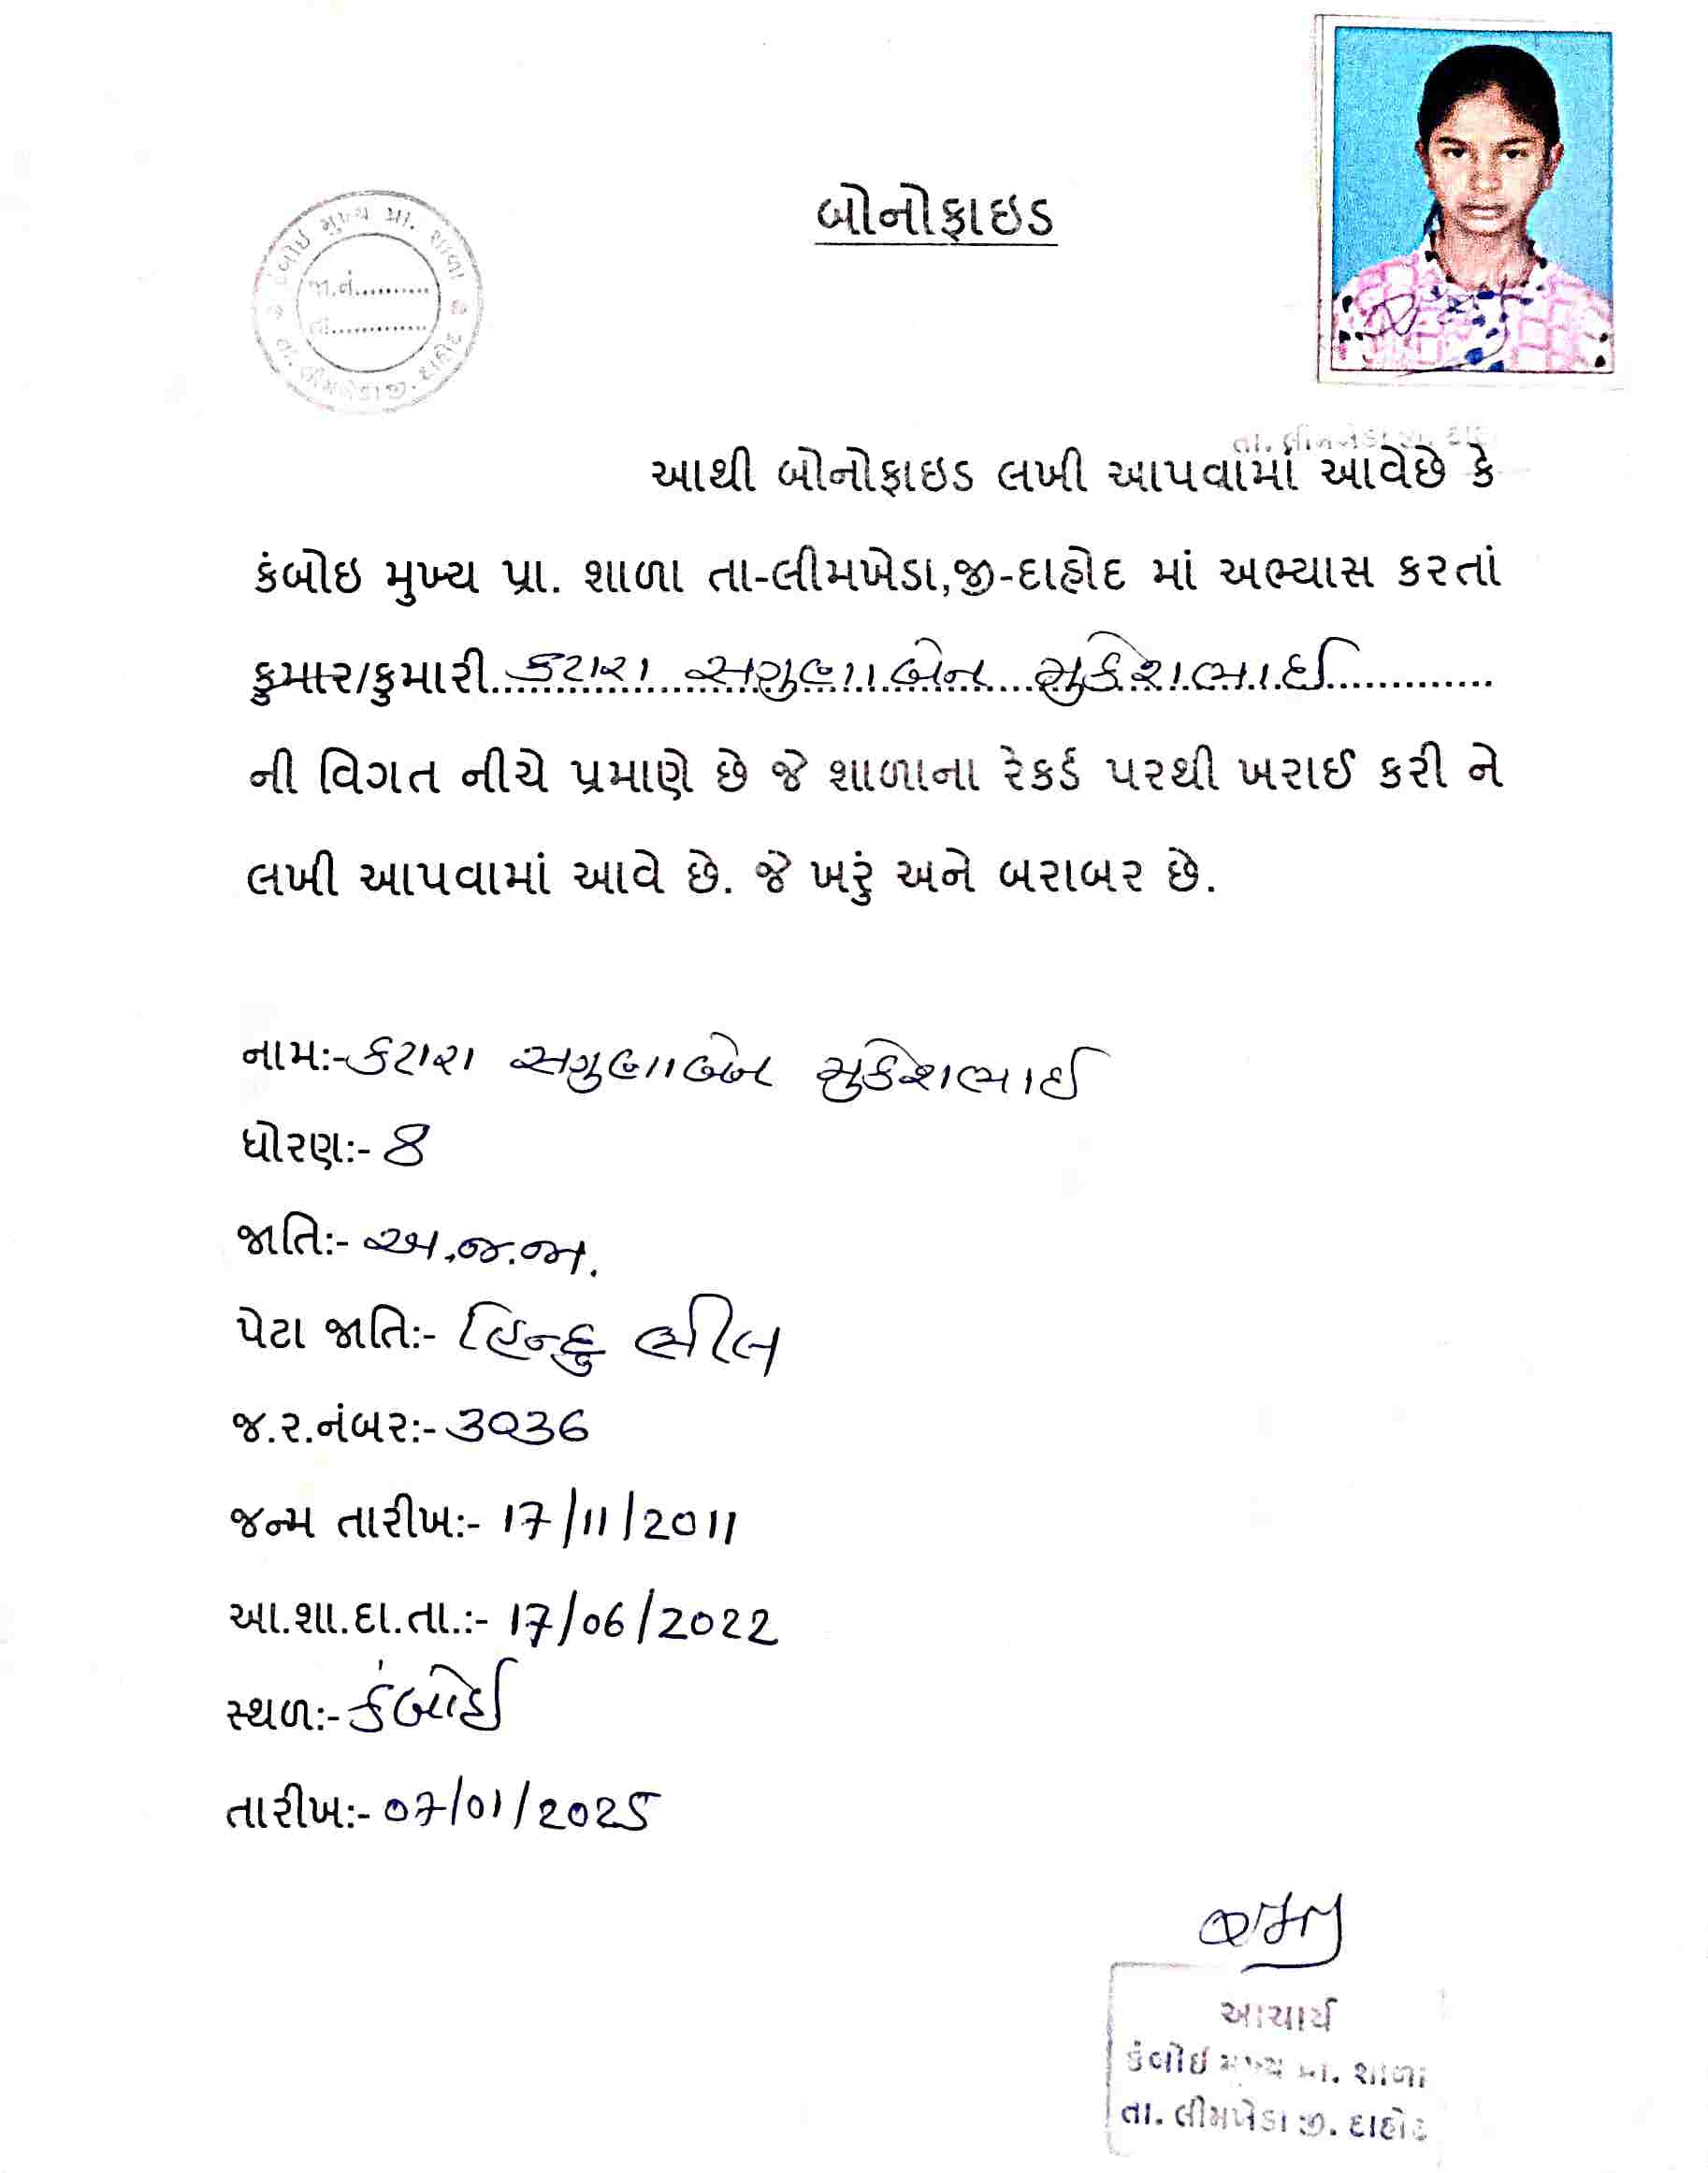 બોનોફાઇડ
કંબોઇ મુખ્ય પ્રા. શાળા
જા.નં...........
તા..............
તા. લીમખેડા જી. દાહોદ
તા. લીમખેડા જી.
આથી બોનોફાઇડ લખી આપવામાં આવેછે કે
કંબોઇ મુખ્ય પ્રા. શાળા તા-લીમખેડા,જી-દાહોદ માં અભ્યાસ કરતાં
કુમાર/કુમારી કટારા સગુણાબેન મુકેશભાઈ
ની વિગત નીચે પ્રમાણે છે જે શાળાના રેકર્ડ પરથી ખરાઈ કરી ને
લખી આપવામાં આવે છે. જે ખરું અને બરાબર છે.
નામ:- કટારા સગુણાબેન મુકેશભાઈ
ધોરણ:- 8
જાતિ:- અ.જ.જા.
પેટા જાતિ:- હિન્દુ ભીલ
જ.ર.નંબર:- 3036
જન્મ તારીખ:- 17/11/2011
આ.શા.દા.તા.:- 17/06/2022
સ્થળ:- કંબોઈ
તારીખ:- 07/01/2025
આચાર્ય
કંબોઇ મુખ્ય પ્રા. શાળા
તા. લીમખેડા જી. દાહોદ